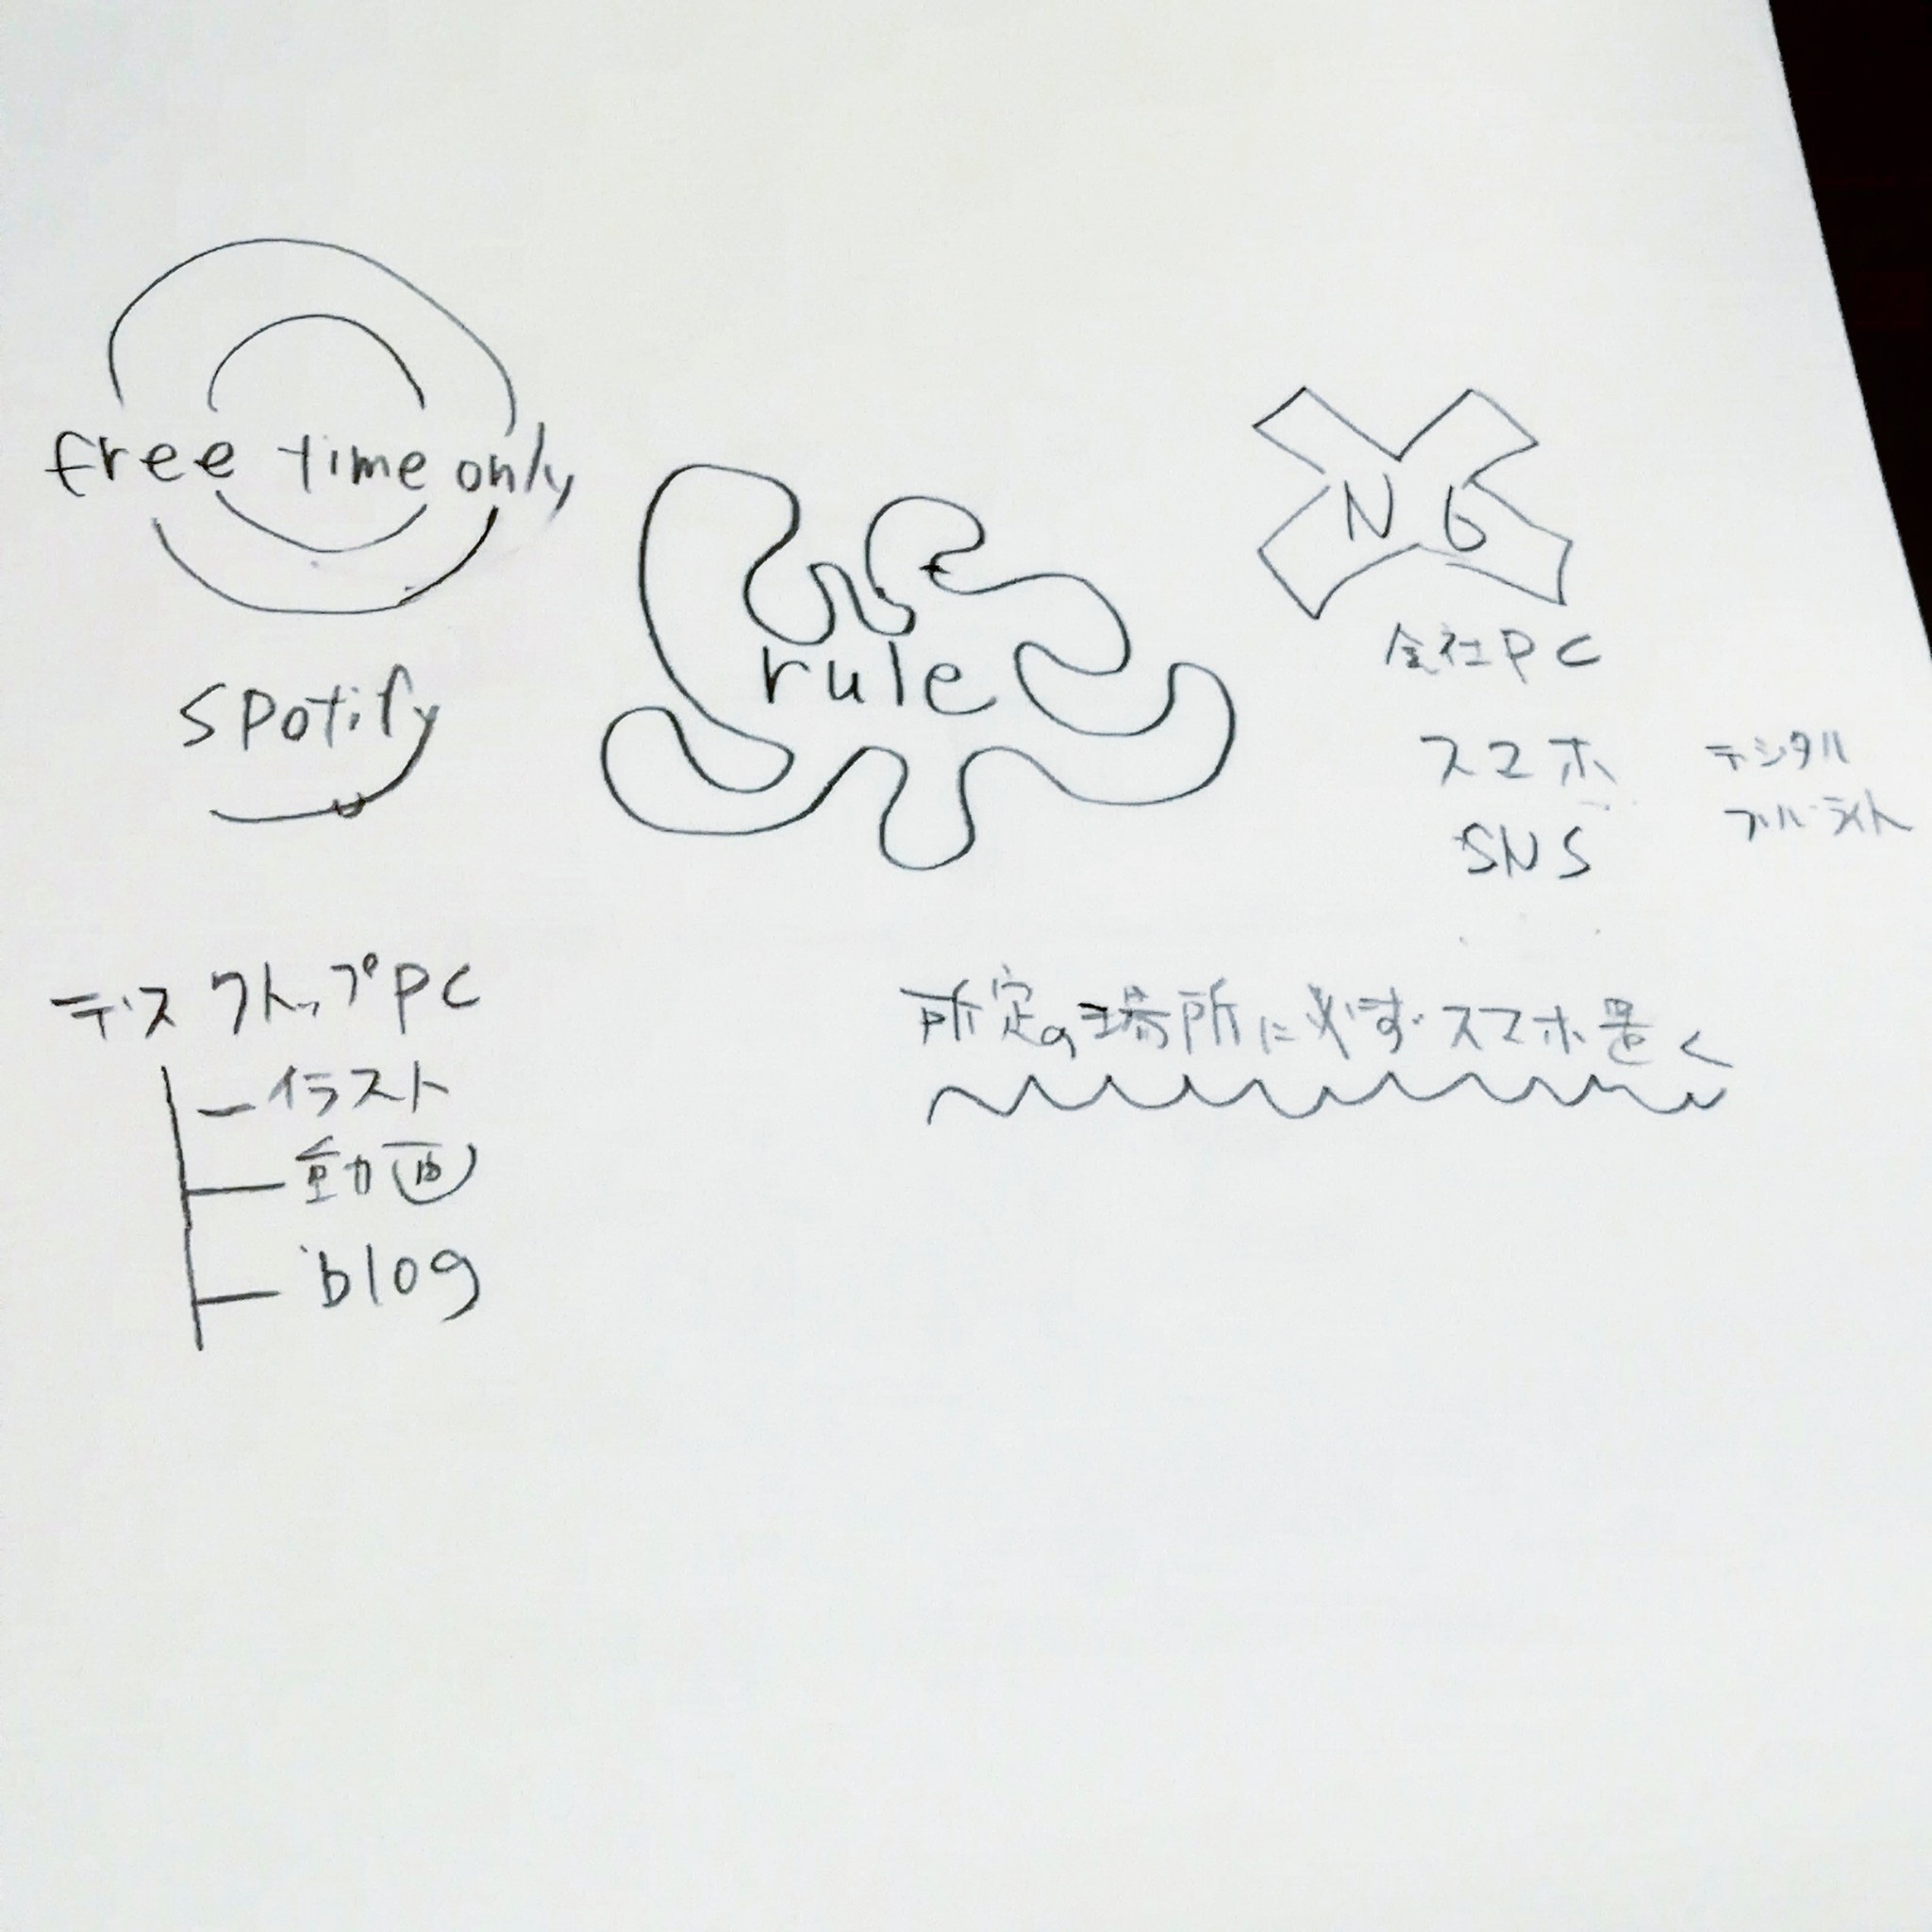 free time only
spotify
rule
NG
会社PC
スマホ
SNS
デジタル
ブルーライト
デスクトップPC
イラスト
動画
blog
所定の場所に必ずスマホ置く